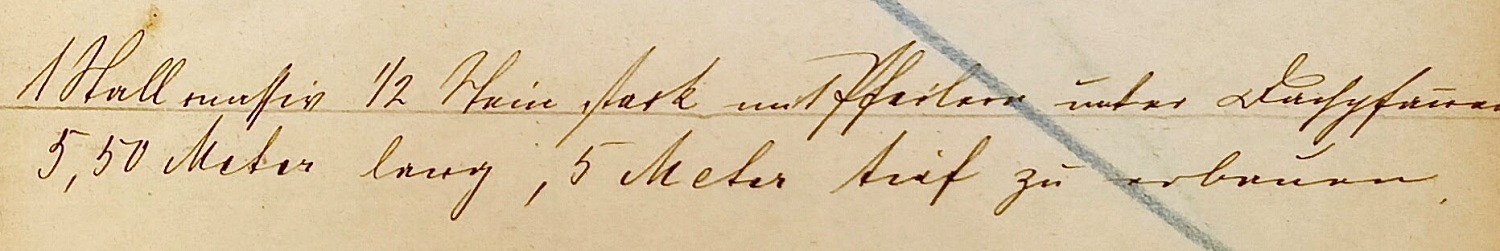 1 Stall massiv 1/2 Stein stark mit Pfeilern unter Dachpfannen
5,50 Meter lang, 5 Meter tief zu erbauen.